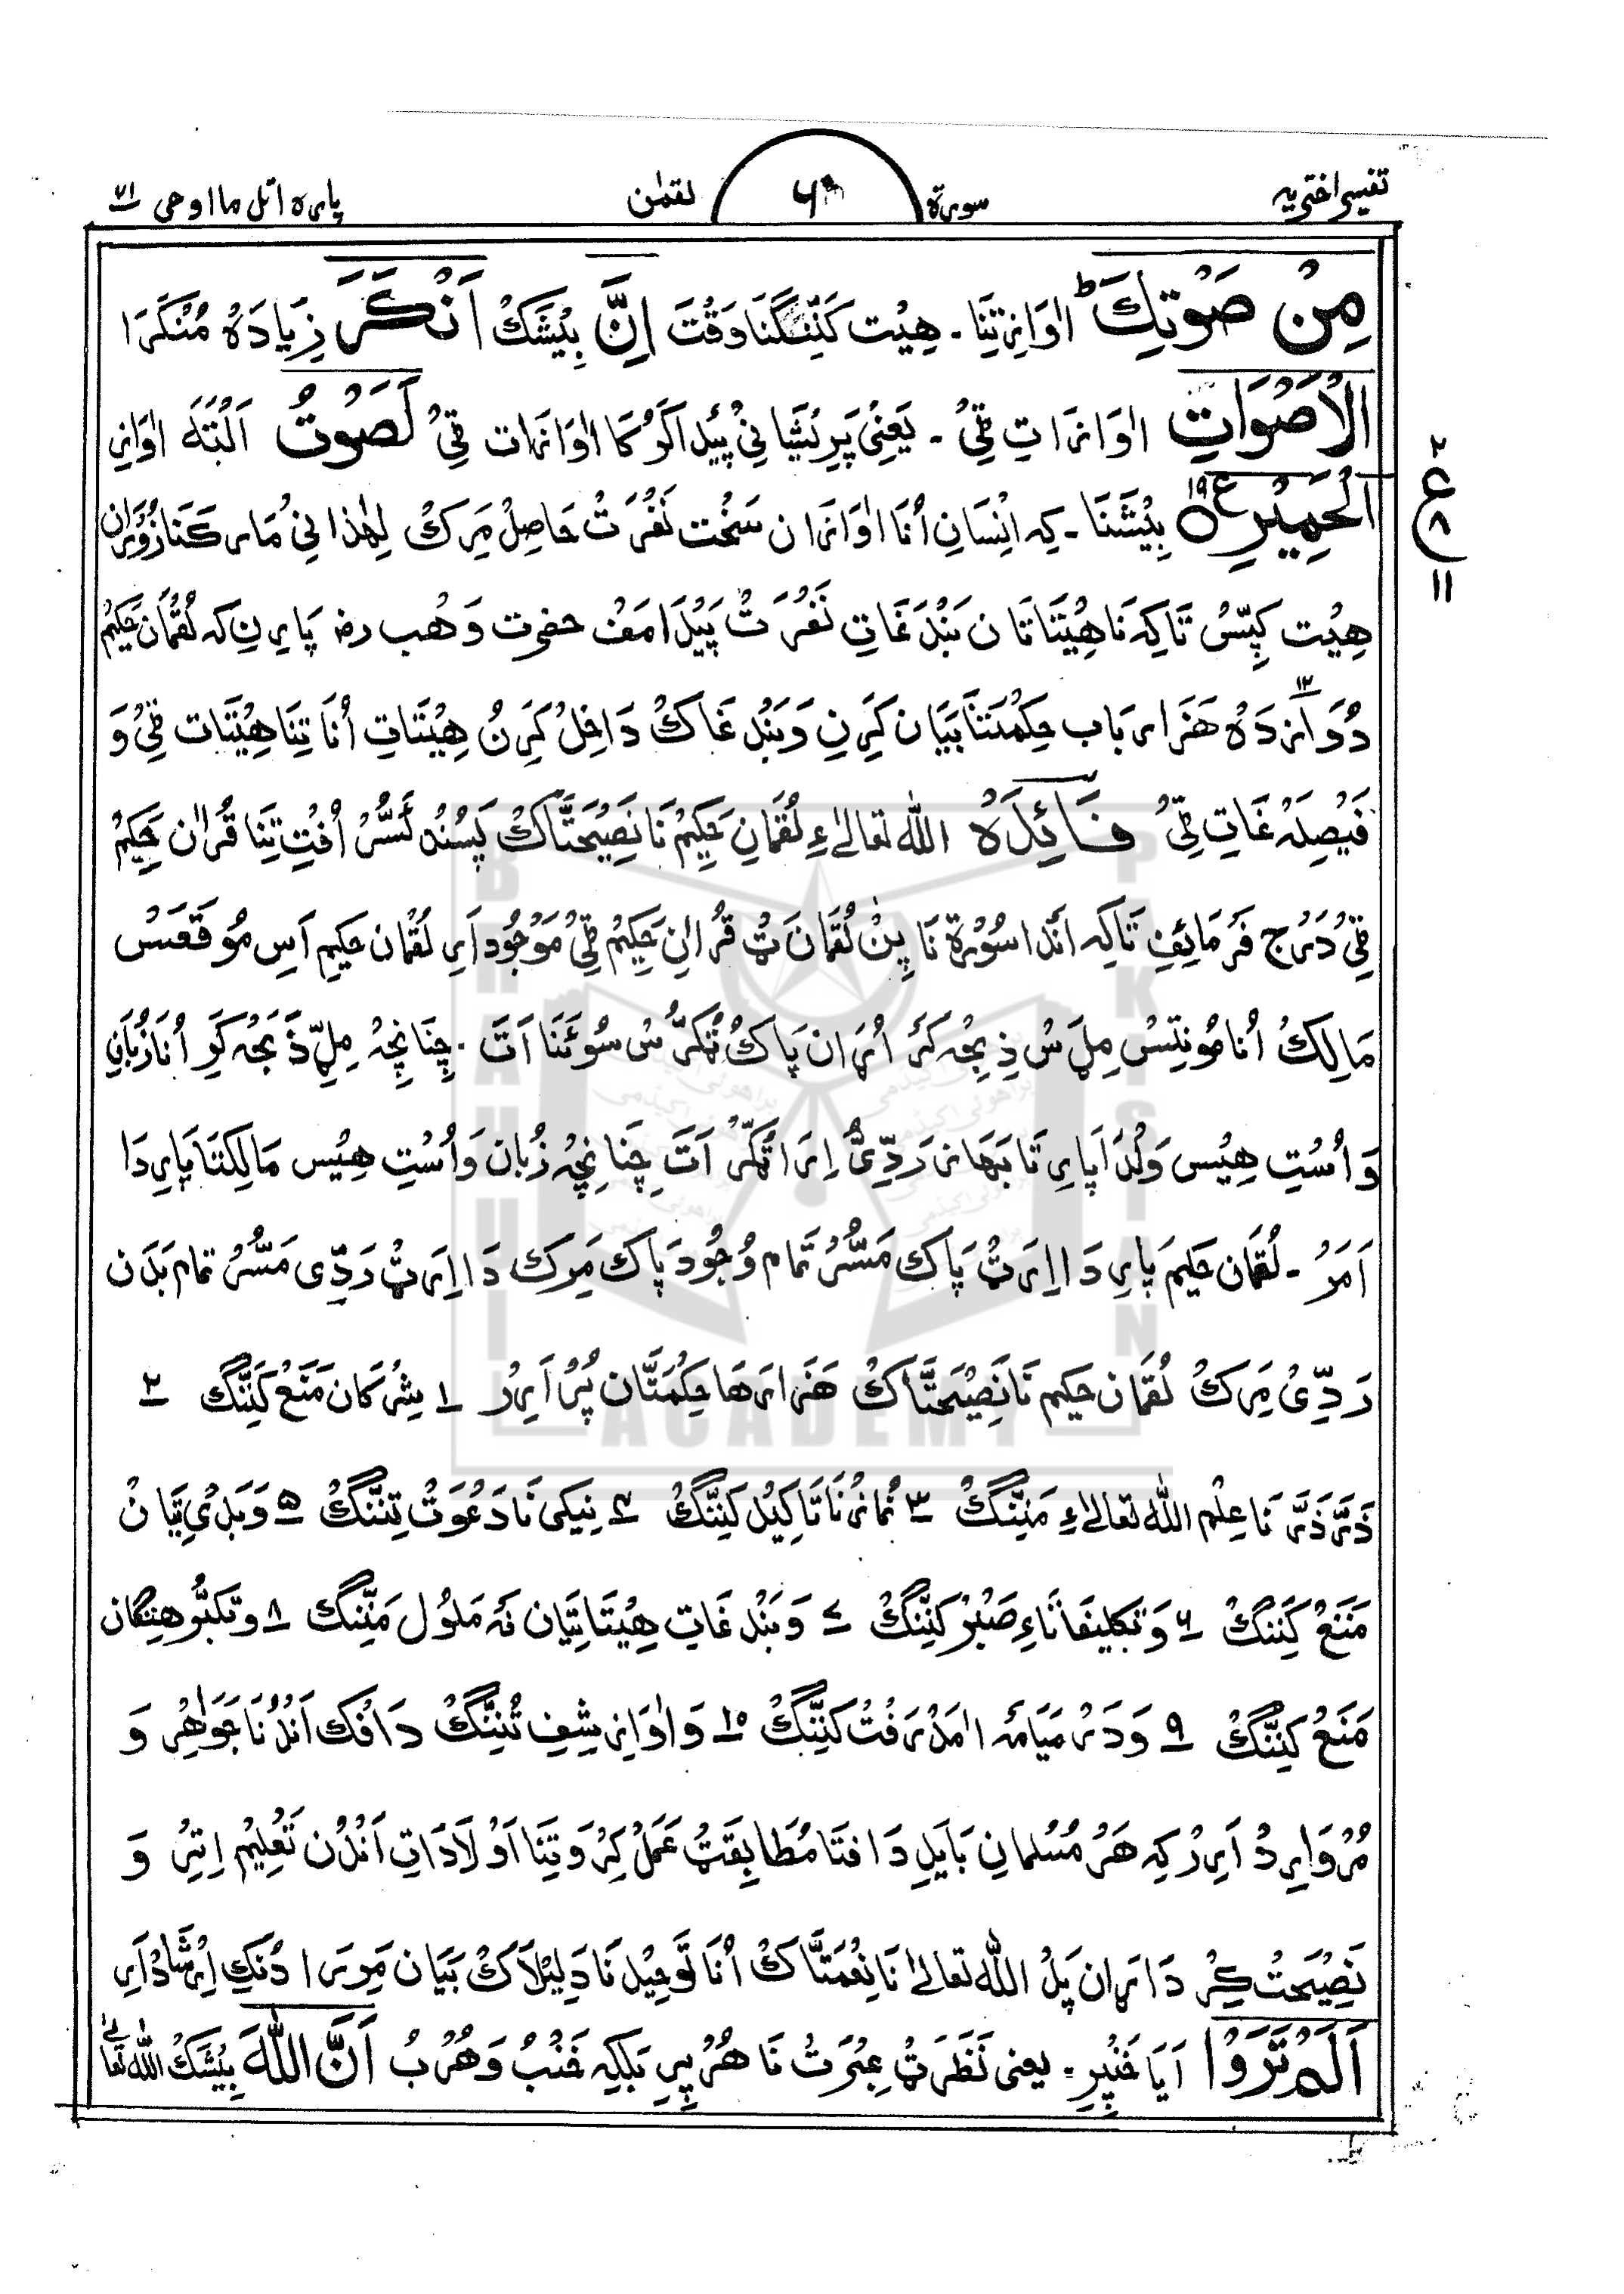 تفسیر اختریہ
سورۃ لقمٰن
پارہ اتل ما اوحی ۲۱
مِنْ صَوْتِكَ ؕ اٰوَازِتِنَا ۔ هِیْت كَنِّنْگنَا وَقْتَ اِنَّ بِیْشَكْ اَنْكَرَ زِیَادَهْ مُنْكَرَا
الْاَصْوَاتِ اٰوَازَاتِ ٹِیْ ۔ یَعْنِیْ پَرِیْشَانِیْ پَیْدَا كَرُكَا اٰوَازَات ٹِیْ لَصَوْتُ اَلْبَتَّه اٰوَازِ
الْحَمِیْرِ ۱۹ بِیْشَنَا ۔ كِه اِنْسَانِ اُنَا اٰوَازَان سَخْت نَفْرَتْ حَاصِلْ مَرِكْ لِهٰذَا نِیْ مَار كَنَا زُوْرَان
هِیْت كَپِّسْ تَاكِه نَا هِیْتَاتَان بَنْدَغَاتِ نَفْرَتْ پَیْدَا مَفْ حضرت وَهْب رض پَارِن كِه لُقْمَان حَكِیْمْ
دُوَازْدَهْ ۱۲ هَزَار بَاب حِكْمَتَنَا بَیَان كَرِنِ وَبَنْدَغَاكْ دَاخِلْ كَرِنْ هِیْتَاتِ اُنَا تِنَا هِیْتَات ٹِیْ وَ
فَیْصِلَه غَاتِ ٹِیْ فَائِدَهْ اللّٰه تعالٰے ءِ لُقْمَانِ حَكِیْمْ نَا نَصِیْحَتَّاكْ پَسُنْد بَسُّرْ اُفْتِ تِنَا قُرْاٰن حَكِیْمْ
ٹِیْ دَرْج فَرْمَائِفِ تَاكِه اَنْدَا سُوْرَة نَا پِنْ لُقْمَان ٹْ قُرْاٰنِ حَكِیْمْ ٹِیْ مَوْجُوْد اَرِ لُقْمَان حَكِیْم اَسِ مُوقَعَسْ
مَالِكْ اُنَا هُوْنِتِسْ مِلَسْ ذِبْحه كَرْ اُرَان پَاكْ ٹُكُّرَسْ سُوْئَنَا اَتَ ۔ چِنَانْچِه مِلِّ ذَبْحه كَرِ اُنَا زُبَانِ
وَ اُسْتِ هِیْس وَلْدَا پَارِ تَا بَهَاز رَدِّیْ اِرَا ٹُكُّرْ اَتَ چِنَانْچِه زُبَان وَ اُسْتِ هِیْس مَالِكْتَا پَارِ دَا
اَمَرْ ۔ لُقْمَان حَكِیْم پَارِ دَا اِرَٹْ پَاك مَسُّرْ تَمَام وُجُوْد پَاك مَرِك دَا اِرَٹْ رَدِّی مَسُّرْ تمام بَدَن
رَدِّیْ مَرِكْ لُقْمَان حَكِیْم نَا نَصِیْحَتَّاكْ هَزَارهَا حِكْمَتَّان پُرْ اَرِر ۱ شِرْكَان مَنَعْ كَنِّنْگ ۲
ذَرَّه ذَرَّه نَا عِلْم اللّٰه تعالٰے ءِ مَنِّنْگْ ۳ نُمَازْنَا تَاكِیْد كَنِّنْگْ ۴ نِیْكی نَا دَعْوَتْ تِنِّنْگْ ۵ وَ بَدِیْ تِیَانْ
مَنَعْ كَنِّنْگْ ۶ وَ تَكْلِیفَاتَاءِ صَبْرْ كَنِّنْگْ ۷ وَ بَنْدَغَاتِ هِیْتَاتِیَان نَه مَلُوْل مَنِّنْگْ ۸ وَتَكَبُّر هِنِنْگان
مَنَعْ كَنِّنْگْ ۹ وَ دَرْمِیَانَه اٰمَدْرَفْتْ كَنِّنْگْ ۱۰ وَ اٰوَازِ شِفِ تَنِّنْگْ دَافْك اَنْدُنَّا جَوَاهِر وَ
مُرْوَارِیدْ اَرِرْ كِه هَرْ مُسْلمانِ بَایَدِ دَافْتَا مُطَابِقَٹْ عَمَلْ كِرْ وَ تِنَا اَوْلَادَاتِ اَنْدُن تَعْلِیْم اِتِرْ وَ
نَصِیْحَتْ كِرْ دَارَان پَدْ اللّٰه تعالٰے نَا نِعْمَتَّاكْ اُنَا تَوحِیْد نَا دَلِیْلَاكْ بَیَان مَرِرَا دُنْكِ اِرْشَادْ اَرِ
اَلَمْ تَرَوْا اَیَا خَنْپِر ۔ یعنی نَظَرَٹْ عِبْرَتْ نَا هُرْپِرِ بَلْكِه خَنْبْ وَ هُرْبْ اَنَّ اللّٰهَ بِیْشَكْ اللّٰه تعالٰے